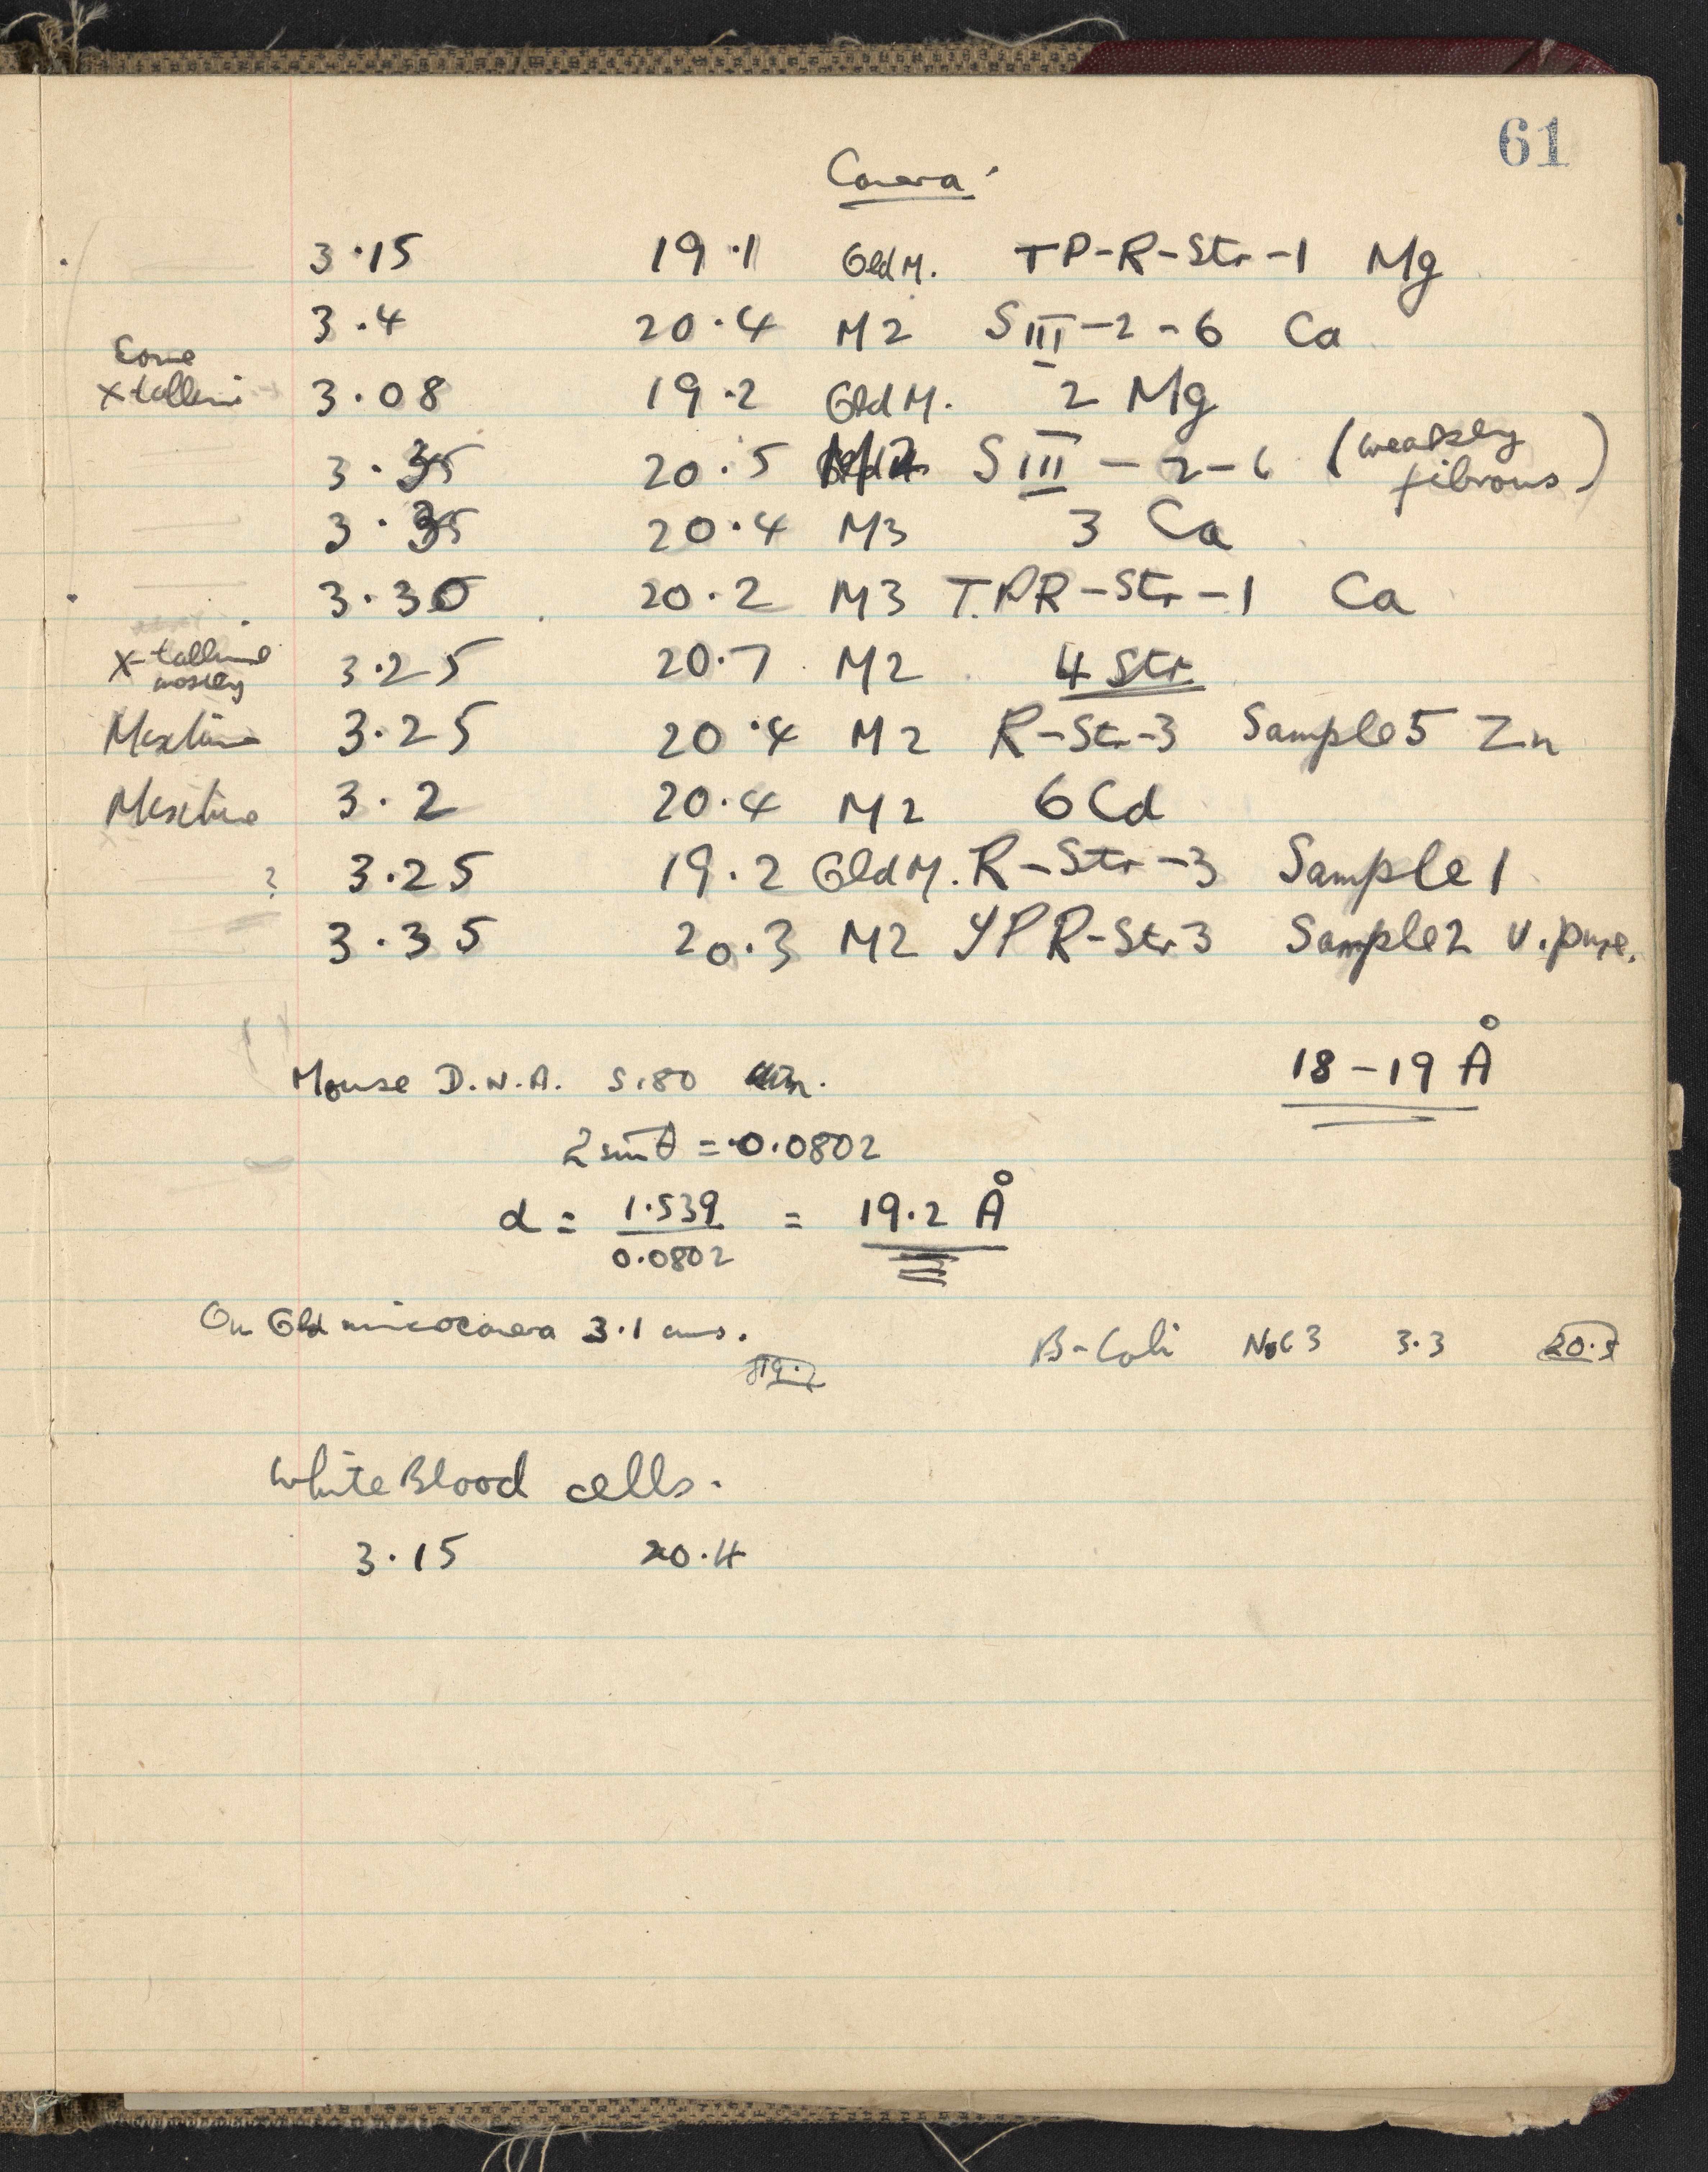 61
Camera
3.15 19.1 Old M. TP-R-Str-1 Mg
3.4 20.4 M2 S III-2-6 Ca
Some
X-talline 3.08 19.2 Old M. 2 Mg
3.35 20.5 S III - 2-6 (weakly
fibrous)
3.35 20.4 M3 3 Ca
3.30 20.2 M3 T.PR-Str-1 Ca
X-talline
mostly 3.25 20.7 M2 4 Str
Mixture 3.25 20.4 M2 R-Str-3 Sample 5 Zn
Mixture 3.2 20.4 M2 6 Cd
? 3.25 19.2 Old M. R-Str-3 Sample 1
3.35 20.3 M2 YPR-Str3 Sample 2 v. pure.
18-19 Å
Mouse D.N.A. S.180
2 sin θ = 0.0802
d = 1.539 = 19.2 Å
0.0802
On Old microcamera 3.1 cms.
19.2
B-Coli 3.3
White Blood cells.
3.15 20.4